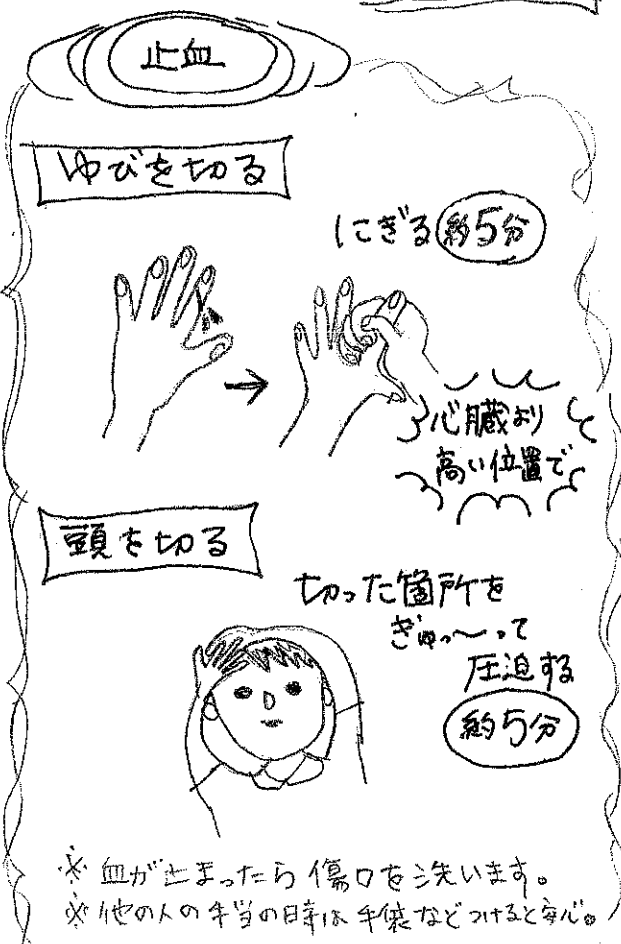 止血
ゆびを切る
にぎる 約5分
心臓より
高い位置で
頭を切る
切った箇所を
ぎゅっ〜って
圧迫する
約5分
※ 血が止まったら傷口を洗います。
※ 他の人の手当の時は手袋などつけると安心。